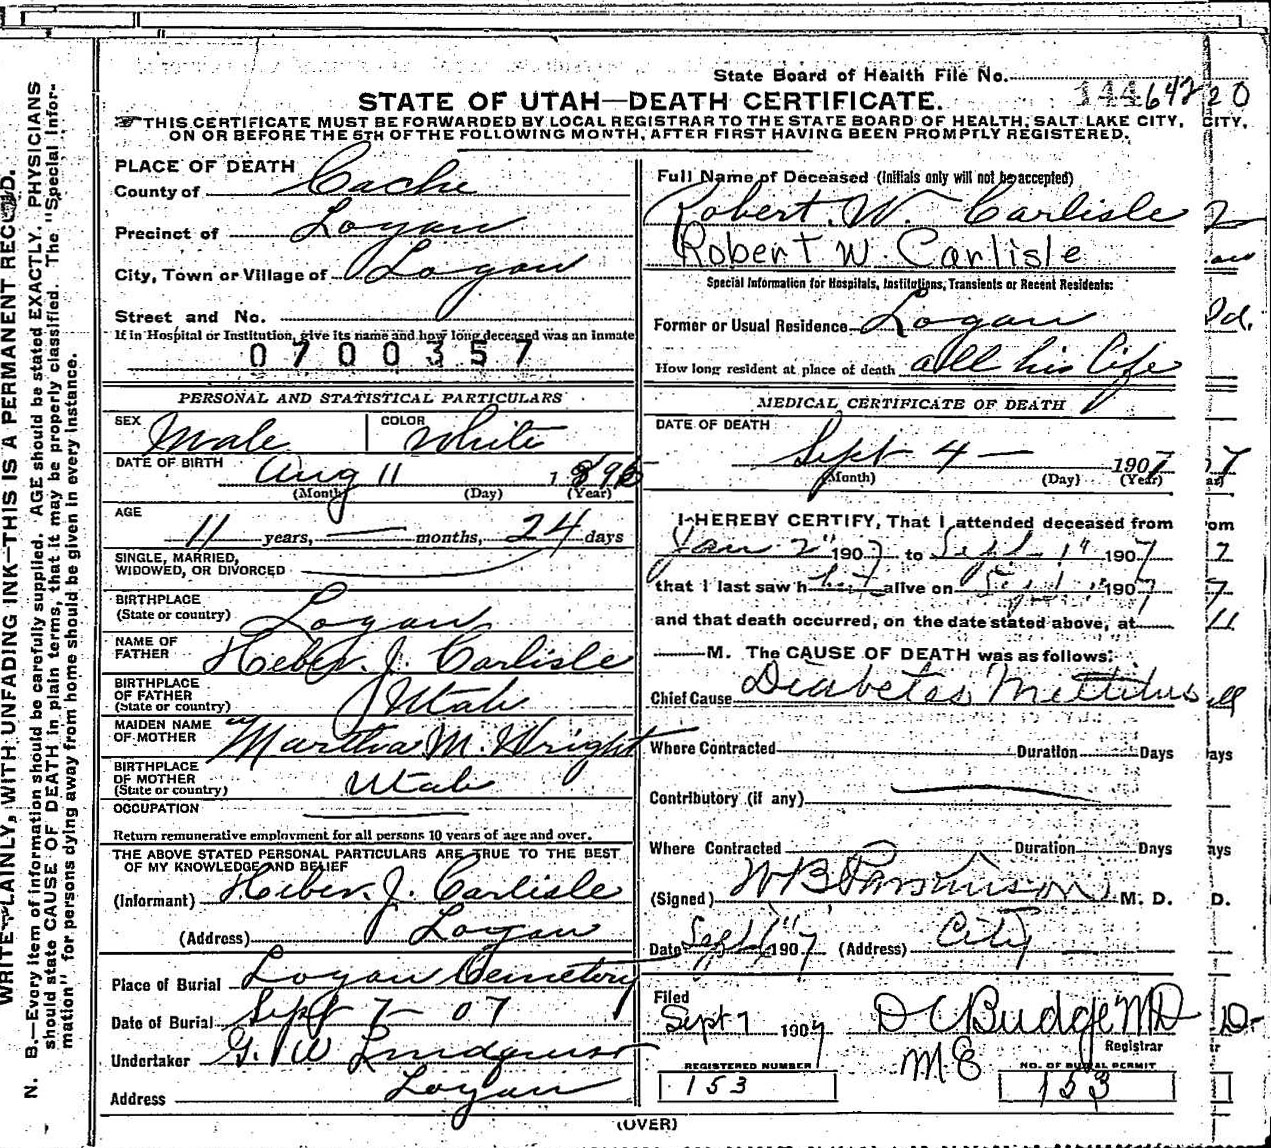 WRITE PLAINLY, WITH UNFADING INK—THIS IS A PERMANENT RECORD.
N. B.—Every item of information should be carefully supplied. AGE should be stated EXACTLY. PHYSICIANS
should state CAUSE OF DEATH in plain terms, that it may be properly classified. The "Special Infor-
mation" for persons dying away from home should be given in every instance.
State Board of Health File No.
144642 20
STATE OF UTAH—DEATH CERTIFICATE.
THIS CERTIFICATE MUST BE FORWARDED BY LOCAL REGISTRAR TO THE STATE BOARD OF HEALTH, SALT LAKE CITY, CITY,
ON OR BEFORE THE 5TH OF THE FOLLOWING MONTH, AFTER FIRST HAVING BEEN PROMPTLY REGISTERED.
PLACE OF DEATH
County of Cache
Precinct of Logan
City, Town or Village of Logan
Street and No.
If in Hospital or Institution, give its name and how long deceased was an inmate
0700357
PERSONAL AND STATISTICAL PARTICULARS
SEX Male COLOR White
DATE OF BIRTH Aug 11 1896
(Month) (Day) (Year)
AGE
11 years, — months, 24 days
SINGLE, MARRIED,
WIDOWED, OR DIVORCED
BIRTHPLACE
(State or country) Logan
NAME OF
FATHER Heber J. Carlisle
BIRTHPLACE
OF FATHER
(State or country) Utah
MAIDEN NAME
OF MOTHER Martha M. Wright
BIRTHPLACE
OF MOTHER
(State or country) Utah
OCCUPATION
Return remunerative employment for all persons 10 years of age and over.
THE ABOVE STATED PERSONAL PARTICULARS ARE TRUE TO THE BEST
OF MY KNOWLEDGE AND BELIEF
(Informant) Heber J. Carlisle
(Address) Logan
Place of Burial Logan Cemetery
Date of Burial Sept 7 — 07
Undertaker G. W Lindquist
Address Logan
Full Name of Deceased (Initials only will not be accepted)
Robert. W. Carlisle
Robert W. Carlisle
Special Information for Hospitals, Institutions, Transients or Recent Residents:
Former or Usual Residence Logan
How long resident at place of death all his life
MEDICAL CERTIFICATE OF DEATH
DATE OF DEATH
Sept 4 — 1907
(Month) (Day) (Year)
I HEREBY CERTIFY, That I attended deceased from
Jan 2" 1907 to Sept 1" 1907
that I last saw h alive on Sept 1" 1907
and that death occurred, on the date stated above, at
M. The CAUSE OF DEATH was as follows:
Chief Cause Diabetes Mettitus
Where Contracted Duration Days
Contributory (if any)
Where Contracted Duration Days
(Signed) W B Parkinson M. D.
Date Sept 1907 (Address) City
Filed
Sept 7 1907 D C Budge MD
Registrar
M E
REGISTERED NUMBER
153
NO. OF BURIAL PERMIT
153
(OVER)